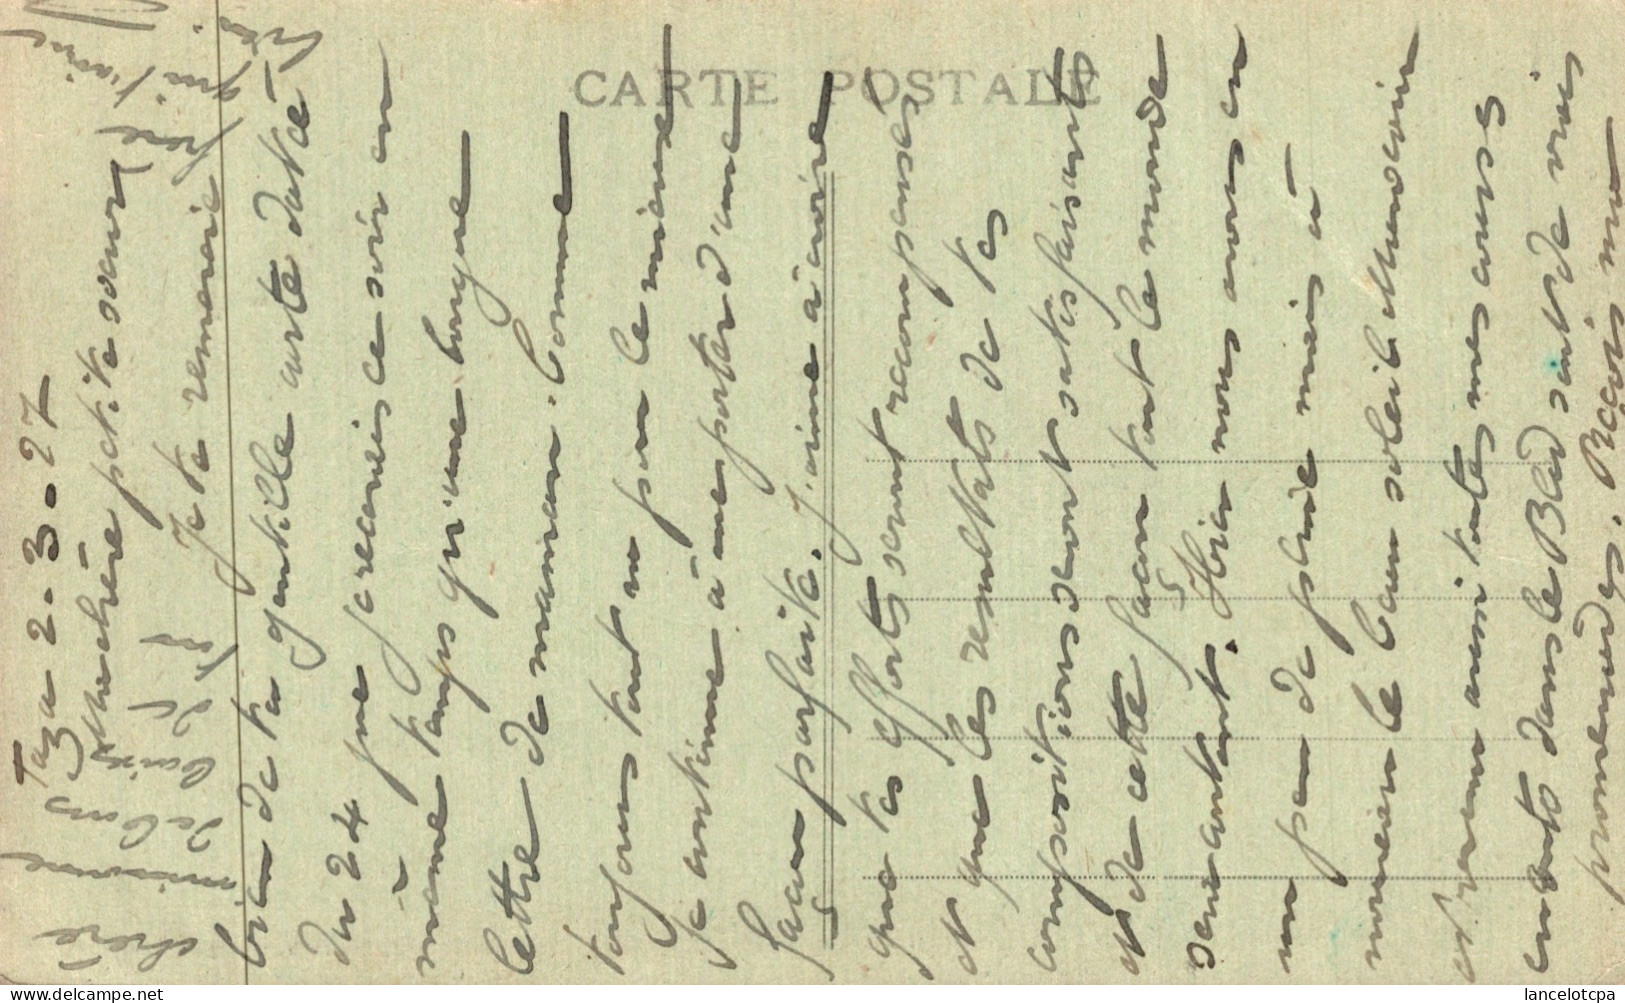 Taza 2-3-27
Ma chère petite sœur
Je te remercie
bien de ta gentille carte datée
du 24 que je reçois ce soir en
même temps qu'une longue
lettre de maman. Comme
toujours tout va pour le mieux
je continue à me porter d'une
façon parfaite. J'aime à croire
que tes efforts seront récompensés
et que les résultats de tes
compositions seront satisfaisants
et de cette façon tout le monde
sera content. Hier nous avons eu
un peu de pluie mais à
nouveau le beau soleil Marocain
est revenu aussi toutes mes courses
en auto dans le Bled sont de vrais
promenades. Reçois ma
chère
mignonne
de bons
baisers de ton
frère
qui t'aime
bien.
CARTE POSTALE
© lancelotcpa
lancelotcpa